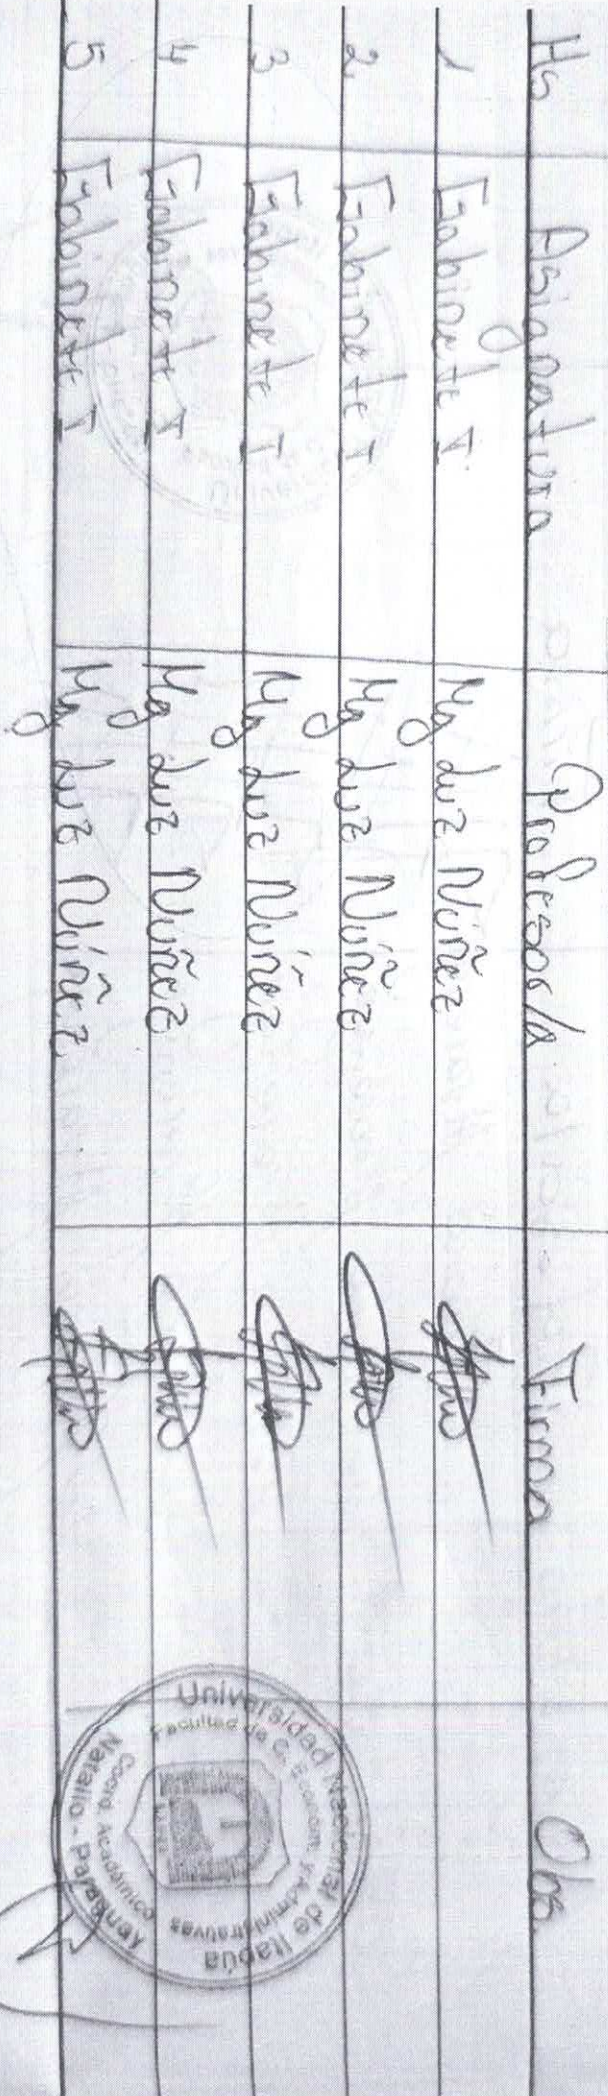 Hs Asignatura Profesor/a Firma Obs.
1 Gabinete I Mg Luz Núñez
2 Gabinete I Mg Luz Núñez
3 Gabinete I Mg Luz Núñez
4 Gabinete I Mg Luz Núñez
5 Gabinete I Mg Luz Núñez
Universidad Nacional de Itapúa
Facultad de C. Económ. y Administrativas
Coord. Académico
Natalio - Paraguay